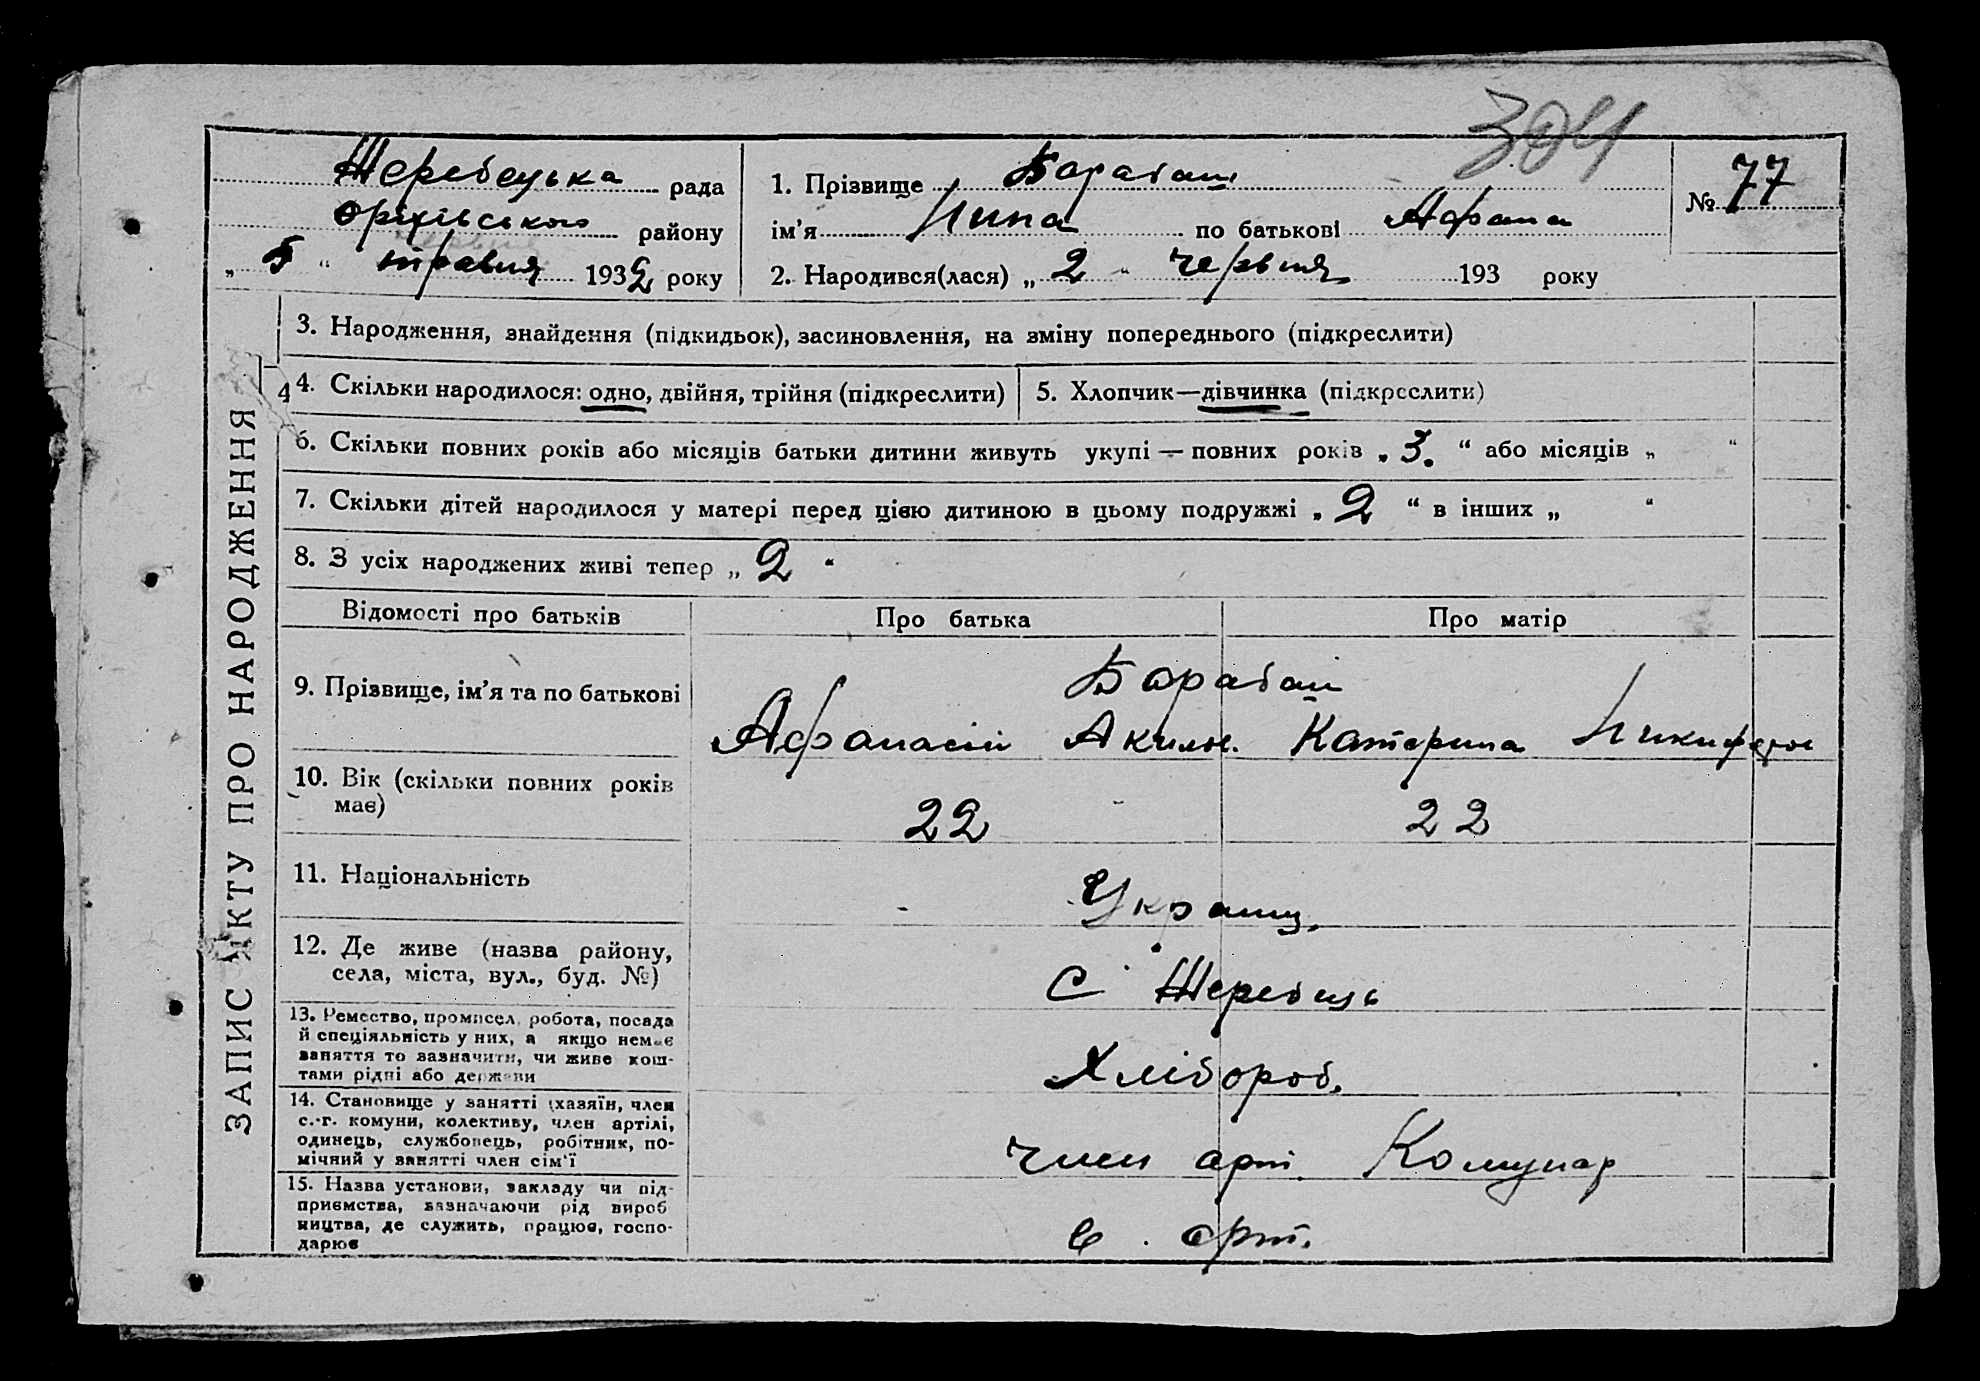 304
Жеребецька рада
Оріхівського району
„ 5 “ травня 1932 року
1. Прізвище Барабаш
ім’я Нина по батькові Афана
№ 77
2. Народився(лася) „ 2 “ червня 193 року
3. Народження, знайдення (підкидьок), засиновлення, на зміну попереднього (підкреслити)
4 4. Скільки народилося: одно, двійня, трійня (підкреслити)
5. Хлопчик—дівчинка (підкреслити)
6. Скільки повних років або місяців батьки дитини живуть укупі — повних років „ 3. “ або місяців „ “
7. Скільки дітей народилося у матері перед цією дитиною в цьому подружжі „ 2 “ в інших „ “
8. З усіх народжених живі тепер „ 2 “
ЗАПИС АКТУ ПРО НАРОДЖЕННЯ
Відомості про батьків
Про батька
Про матір
9. Прізвище, ім’я та по батькові
Барабаш
Афанасій Акильн. Катерина Никифоров
10. Вік (скільки повних років
має)
22
22
11. Національність
Украинц.
12. Де живе (назва району,
села, міста, вул., буд. №)
С Жеребець
13. Ремество, промисел, робота, посада
й спеціяльність у них, а якщо немає
заняття то зазначити, чи живе кош-
тами рідні або держави
Хлібороб.
14. Становище у занятті (хазяїн, член
с.-г. комуни, колективу, член артілі,
одинець, службовець, робітник, по-
мічний у занятті член сім’ї
член арт. Комунар
15. Назва установи, закладу чи під-
приємства, зазначаючи рід вироб
ництва, де служить, працює, госпо-
дарює
в. арт.